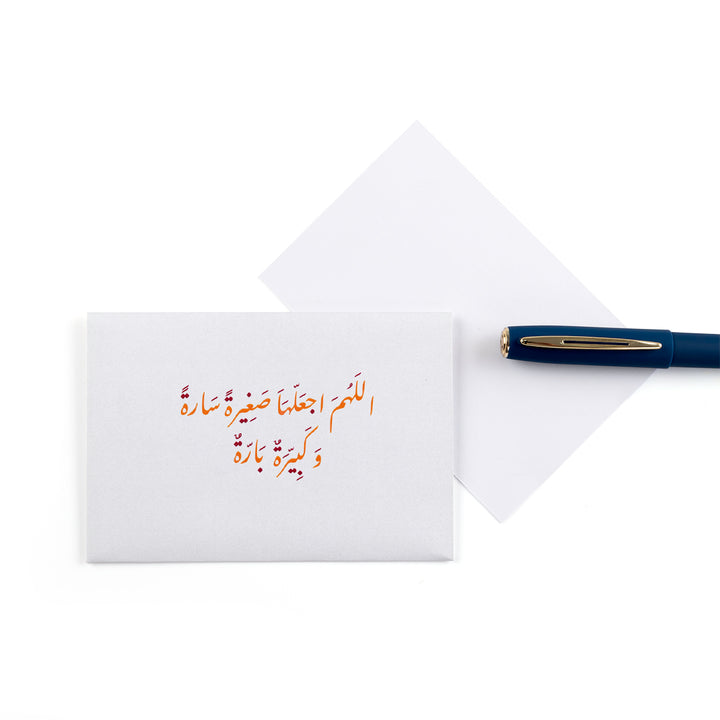 اللَهُمَ اجعَلّهَا صَغِيرةً سَارةً
وَ كَبِيّرَةٌ بَارّةٌ